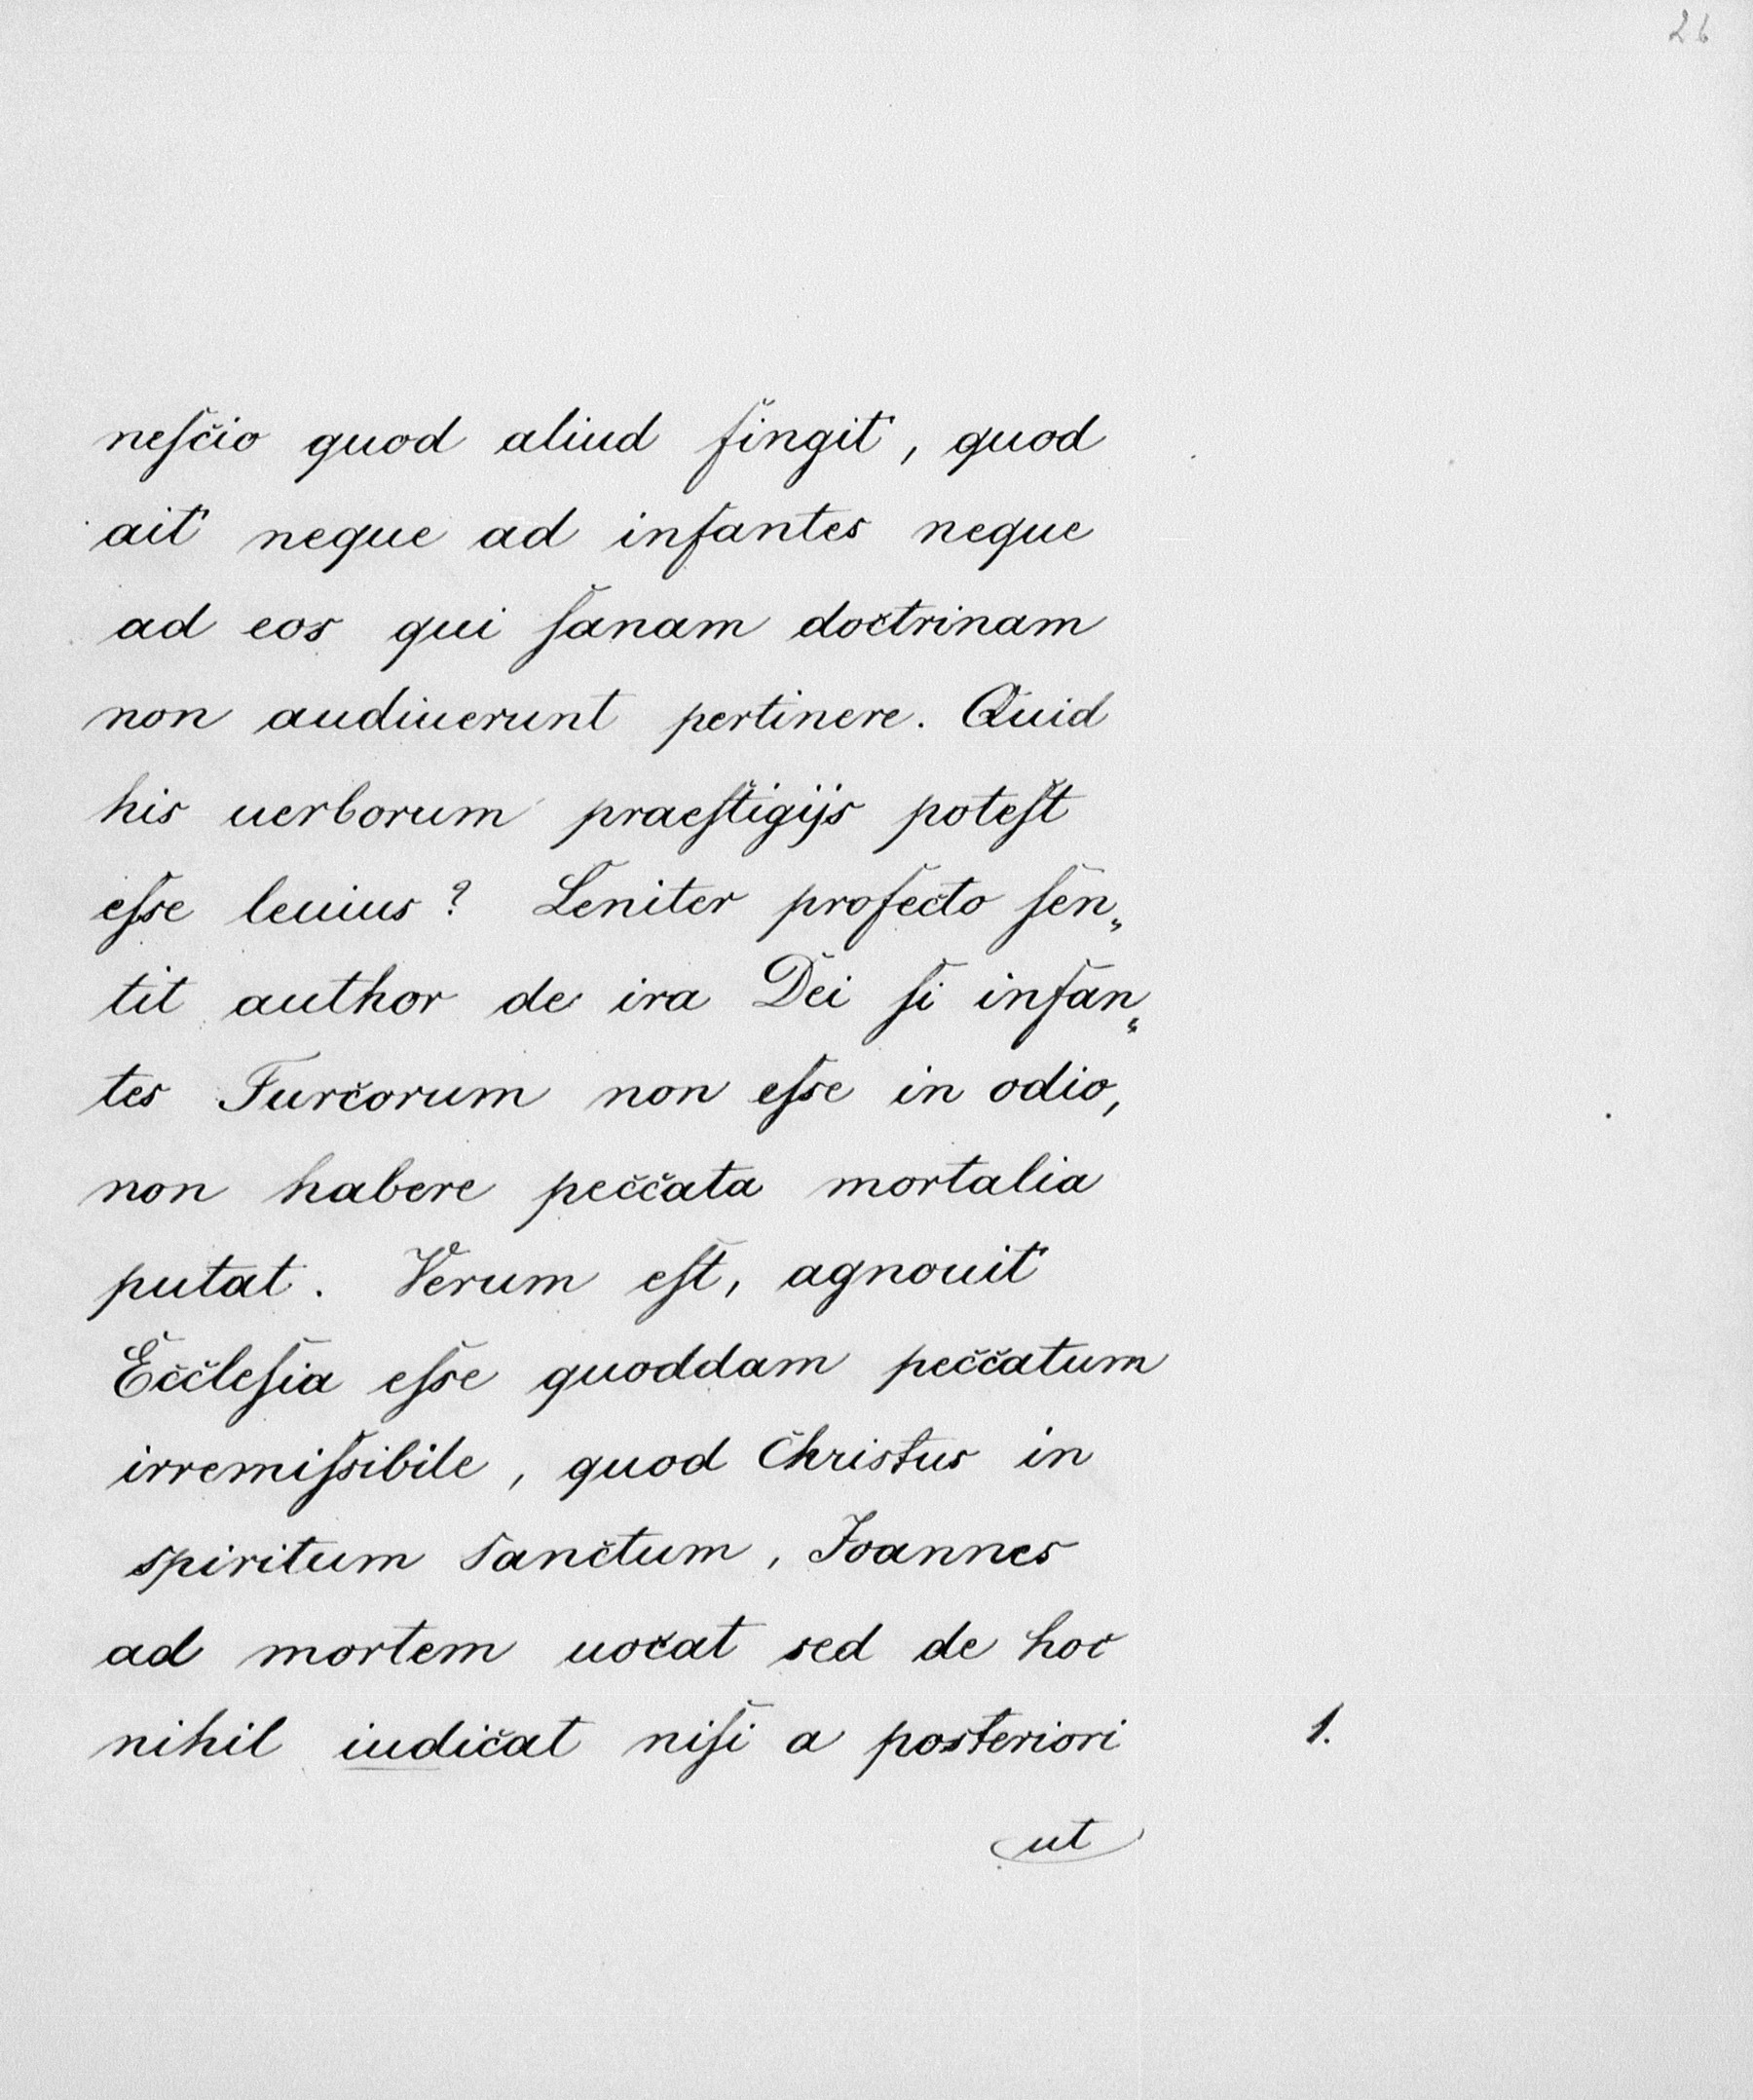 26
neſcio quod aliud fingit, quod
ait neque ad infantes neque
ad eos qui ſanam doctrinam
non audiuerunt pertinere. Quid
his uerborum praeſtigijs poteſt
eſse leuius? Leniter profecto ſen„
tit author de ira Dei ſi infan„
tes Turcorum non eſse in odio,
non habere peccata mortalia
putat. Verum eſt, agnouit
Eccleſia eſse quoddam peccatum
irremiſsibile, quod Christus in
spiritum sanctum, Joannes
ad mortem uocat sed de hoc
nihil iudicat niſi a posteriori 1.
ut